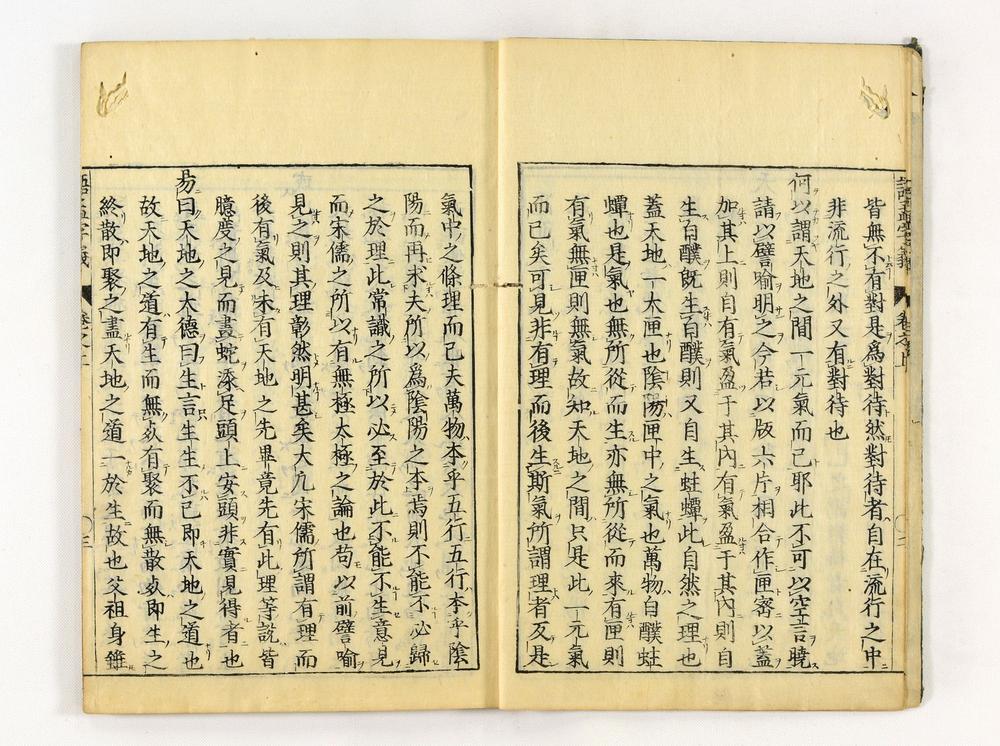 皆無不有對是爲對待然對待者自在流行之中
非流行之外又有對待也
何以謂天地之間一元氣而已耶此不可以空言曉
請以譬喻明之今若以版六片相合作匣密以蓋
加其上則自有氣盈于其內有氣盈于其內則自
生白醭既生白醭則又自生蛀蟫此自然之理也
蓋天地一大匣也陰陽匣中之氣也萬物白醭蛀
蟫也是氣也無所從而生亦無所從而來有匣則
有氣無匣則無氣故知天地之間只是此一元氣
而已矣可見非有理而後生斯氣所謂理者反是
氣中之條理而已夫萬物本乎五行五行本乎陰
陽而再求夫所以爲陰陽之本焉則不能不必歸
之於理此常識之所以必至於此不能不生意見
而宋儒之所以有無極太極之論也苟以前譬喻
見之則其理彰然明甚矣大凢宋儒所謂有理而
後有氣及未有天地之先畢竟先有此理等說皆
臆度之見而畫蛇添足頭上安頭非實見得者也
易曰天地之大德曰生言生生不已即天地之道也
故天地之道有生而無死有聚而無散死即生之
終散即聚之盡天地之道一於生故也父祖身雖
語孟字義 卷之上